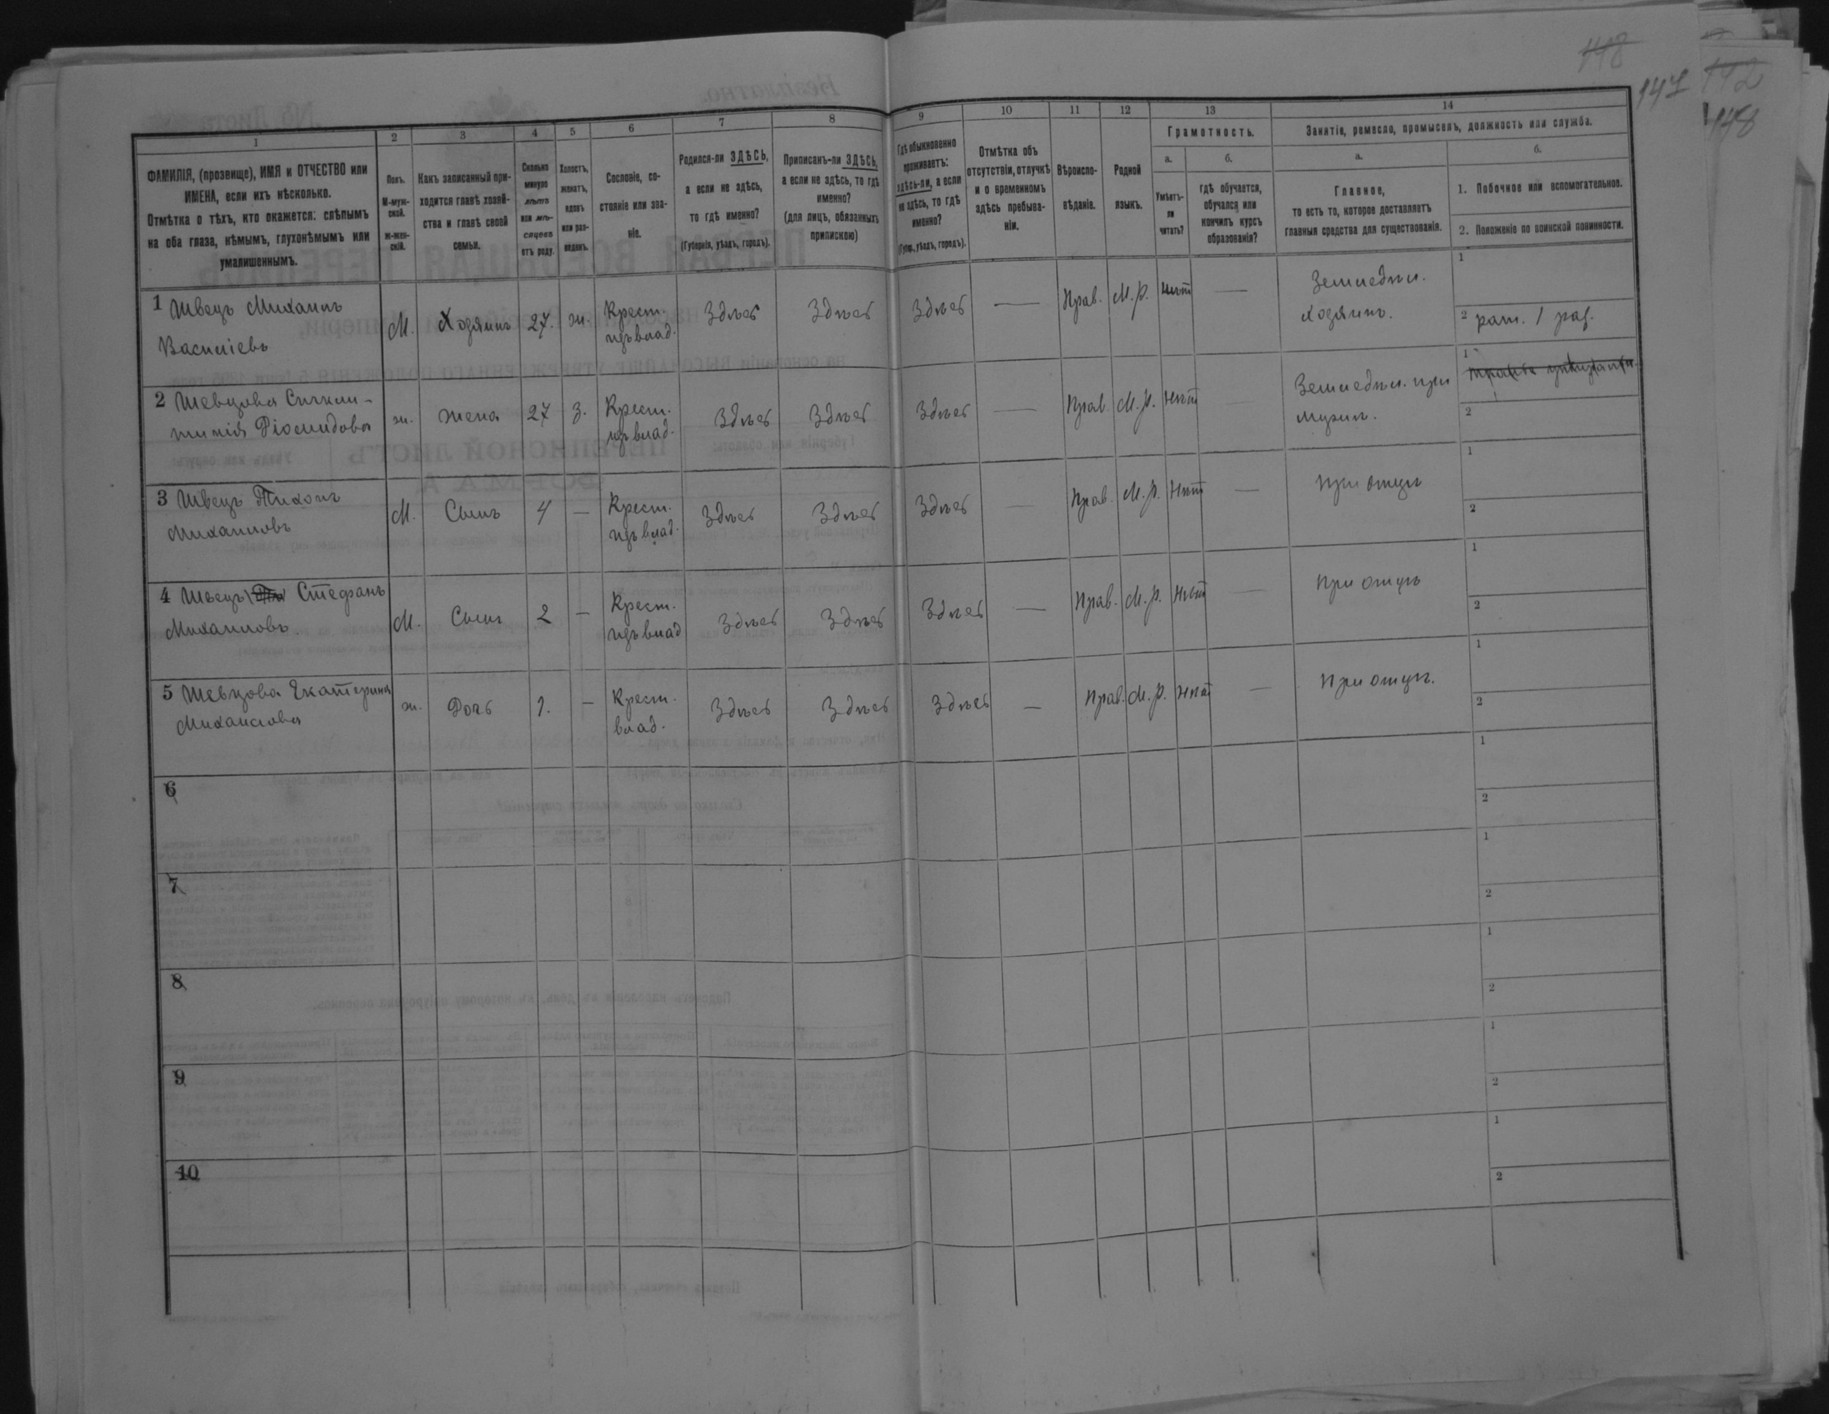 118
147
142
148
1 2 3 4 5 6 7 8 9 10 11 12 13 14
ФАМИЛІЯ, (прозвище), ИМЯ и ОТЧЕСТВО или
ИМЕНА, если ихъ нѣсколько.
Отмѣтка о тѣхъ, кто окажется: слѣпымъ
на оба глаза, нѣмымъ, глухонѣмымъ или
умалишеннымъ.
Полъ.
М-муж-
ской.
ж-жен-
скій.
Какъ записанный при-
ходится главѣ хозяй-
ства и главѣ своей
семьи.
Сколько
минуло
лѣтъ
или мѣ-
сяцевъ
отъ роду.
Холостъ,
женатъ,
вдовъ
или раз-
веденъ.
Сословіе, со-
стояніе или зва-
ніе.
Родился-ли ЗДѢСЬ,
а если не здѣсь,
то гдѣ именно?
(Губернія, уѣздъ, городъ).
Приписанъ-ли ЗДѢСЬ,
а если не здѣсь, то гдѣ
именно?
(для лицъ, обязанныхъ
припискою)
Гдѣ обыкновенно
проживаетъ:
здѣсь-ли, а если
не здѣсь, то гдѣ
именно?
(Губ., уѣздъ, городъ).
Отмѣтка объ
отсутствіи, отлучкѣ
и о временномъ
здѣсь пребыва-
ніи.
Вѣроиспо-
вѣданіе.
Родной
языкъ.
Грамотность.
а.
Умѣетъ-
ли
читать?
б.
гдѣ обучается,
обучался или
кончилъ курсъ
образованія?
Занятіе, ремесло, промыселъ, должность или служба.
а.
Главное,
то есть то, которое доставляетъ
главныя средства для существованія.
б.
1. Побочное или вспомогательное.
2. Положеніе по воинской повинности.
1 Швецъ Михаилъ
Васильевъ
М. Хозяинъ 27. ж. Крест.
изъ влад. Здѣсь Здѣсь Здѣсь — Прав. М.р. нѣт —
Земледѣл.
Хозяинъ.
1
2 рат. 1 раз.
2 Шевцова
Діомидова
ж. жена 27 з. Крест.
изъ влад. Здѣсь Здѣсь Здѣсь — Прав. М.р. нѣт —
Земледѣл. при
мужѣ.
1
2
3 Швецъ Тихонъ
Михаиловъ
М. Сынъ 4 — Крест.
изъ влад. Здѣсь Здѣсь Здѣсь — Прав. М.р. нѣт —
При отцѣ
1
2
4 Швецъ Стефанъ
Михаиловъ
М. Сынъ 2 — Крест.
изъ влад Здѣсь Здѣсь Здѣсь — Прав. М.р. нѣт —
При отцѣ
1
2
5 Шевцова Екатерина
Михаилова
ж. Дочь 1. — Крест.
влад. Здѣсь Здѣсь Здѣсь — Прав. М.р. нѣт —
При отцѣ.
1
2
6
1
2
7
1
2
8
1
2
9
1
2
10
1
2